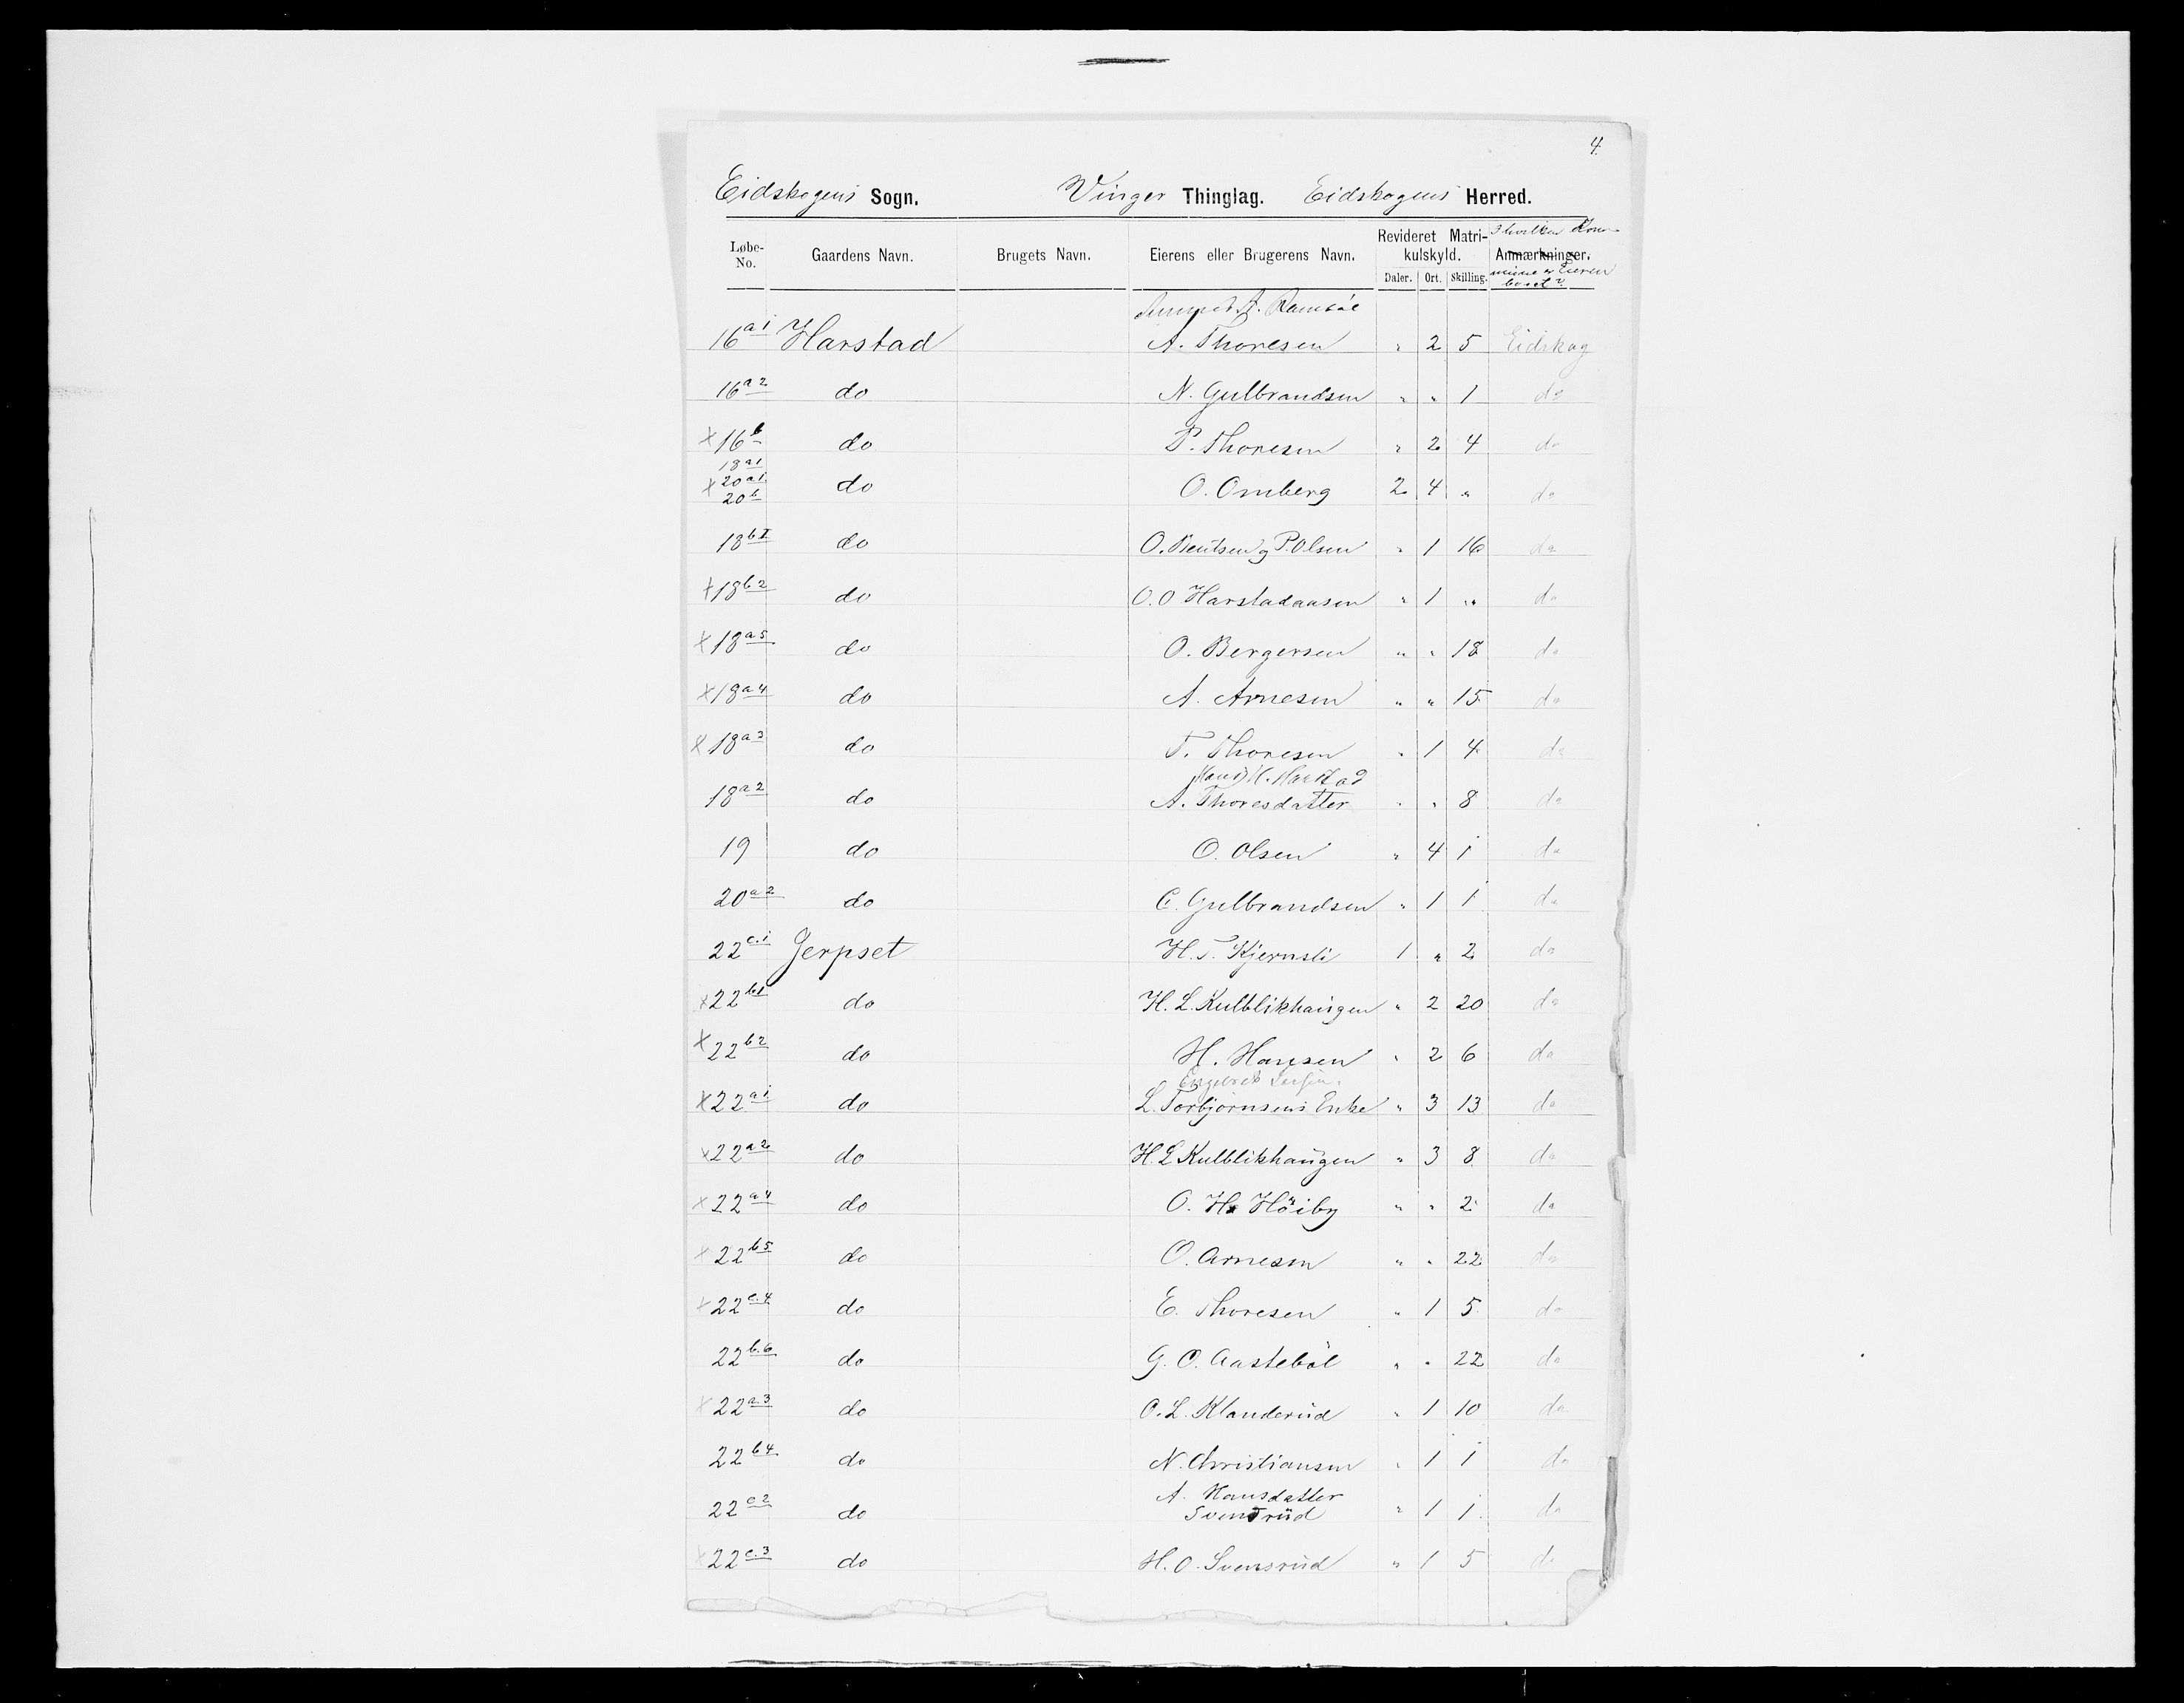 4.
Eidskogens Sogn. Vinger Thinglag. Eidskogens Herred.
Løbe-No. Gaardens Navn. Brugets Navn. Eierens eller Brugerens Navn. Revideret Matrikulskyld. Daler. Ort. Skilling. Anmærkninger. I hvilken Kommune er Eieren bosat?
16 a1 Harstad A. Thoresen " 2 5 Eidskog
16 a2 do N. Gulbrandsen " " 1 do
x 16 b do P. Thoresen " 2 4 do
18 a1
x 20 a1 do O. Omberg 2 4 " do
20 b
18 b1 do O. Bentsen og P. Olsen " 1 16 do
x 18 b2 do O. O Harstadaasen " 1 " do
x 18 a5 do O. Bergersen " " 18 do
x 18 a4 do A. Arnesen " " 15 do
x 18 a3 do T. Thoresen " 1 4 do
H. Harstad
18 a2 do A. Thoresdatter " " 8 do
19 do O. Olsen " 4 1 do
20 a2 do C. Gulbrandsen " 1 1 do
22 c.1 Jerpset H. T. Kjernsli 1 " 2 do
x 22 b1 do H. L. Kulblikhaugen " 2 20 do
x 22 b2 do H. Hansen " 2 6 do
Engebret
x 22 a1 do L. Torbjörnsens Enke " 3 13 do
x 22 a2 do H. L Kulblikhaugen " 3 8 do
x 22 a4 do O. H. Höiby " " 2 do
x 22 b5 do O. Arnesen " " 22 do
x 22 c.4 do E. Thoresen " 1 5 do
22 b.6 do G. O. Aasteböl " " 22 do
x 22 a.3 do O. L. Klanderud " 1 10 do
22 b4 do N. Christiansen " 1 1 do
22 c2 do A. Hansdatter Svensrud " 1 1 do
x 22 c.3 do H. O. Svensrud " 1 5 do